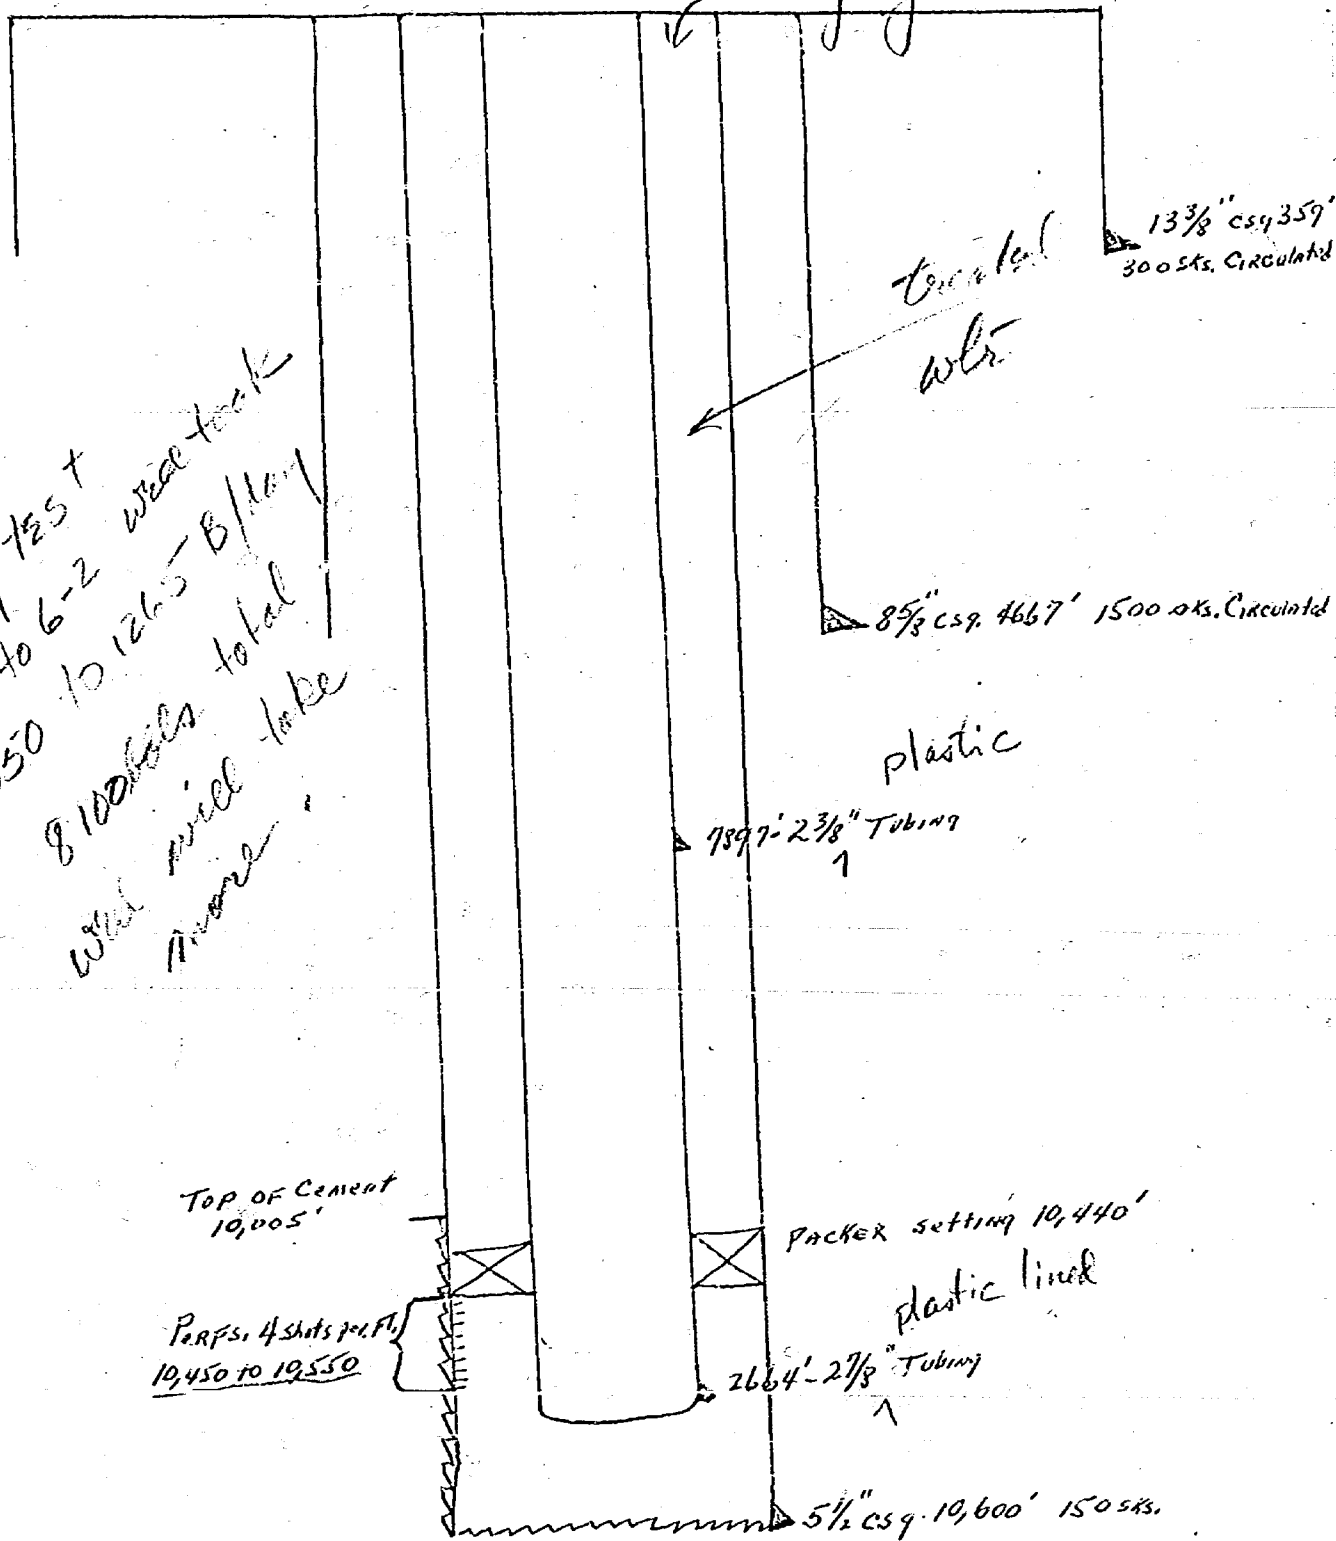 13 3/8" csg 359'
300 sks. Circulated
treated
wtr
test
to 6-2 well took
50 to 1265 B/day
8100 bbls total
well will take
more.
8 5/8" csg. 4667' 1500 sks. Circulated
plastic
7897'-2 3/8" Tubing
^
Top of Cement
10,005'
Packer setting 10,440'
plastic lined
Perfs. 4 shots per. Ft.
10,450 to 10,550
2664'-2 7/8" Tubing
^
5 1/2" csg. 10,600' 150 sks.